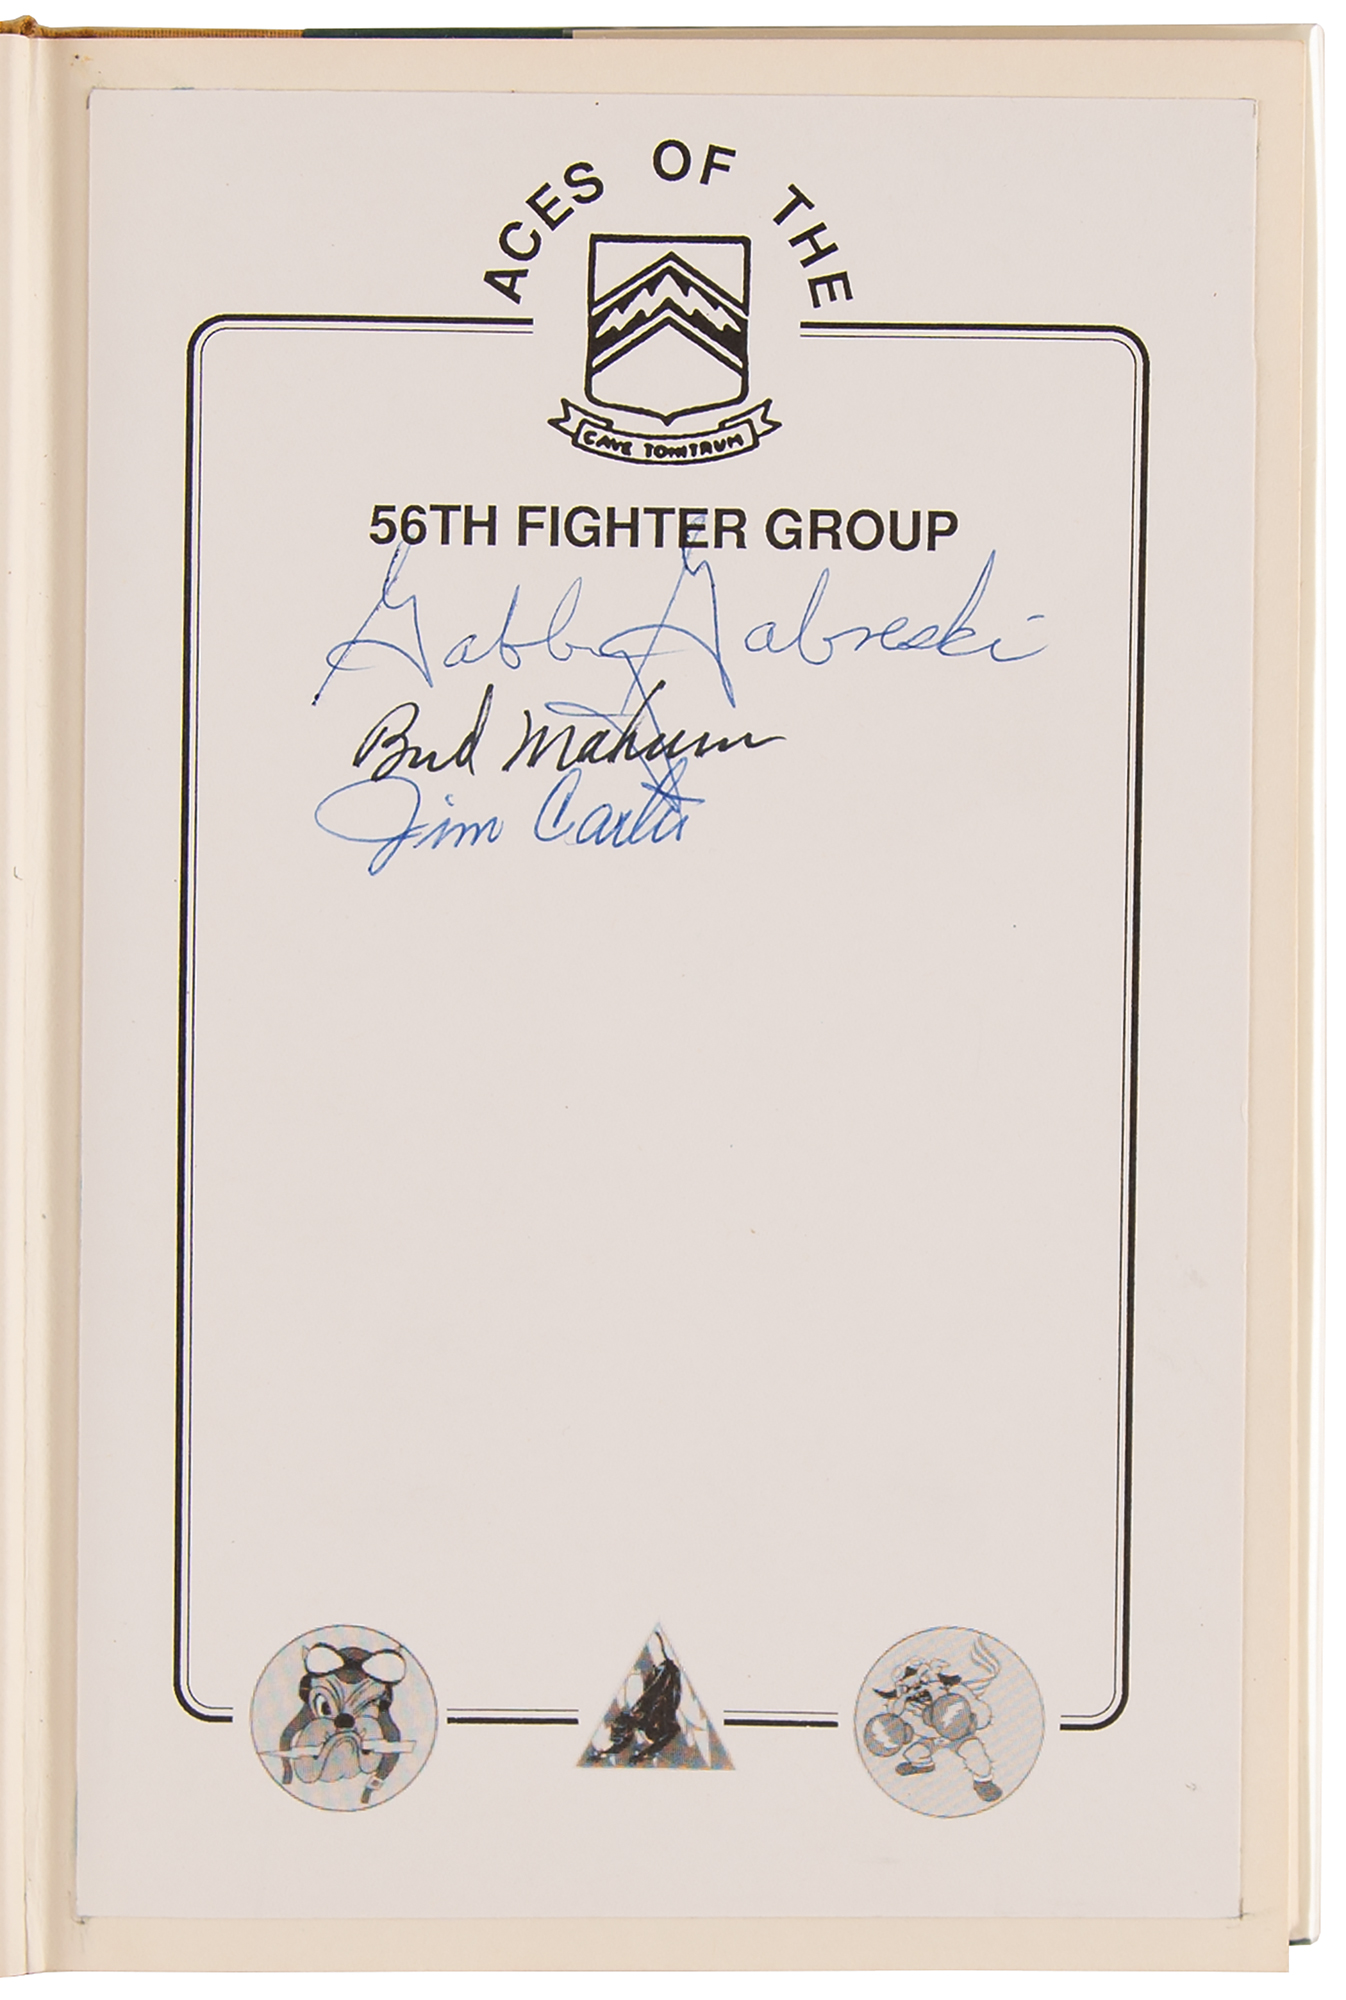 ACES OF THE
CAVE TONITRUM
56TH FIGHTER GROUP
Gabby Gabreski
Bud Mahurin
Jim Carter